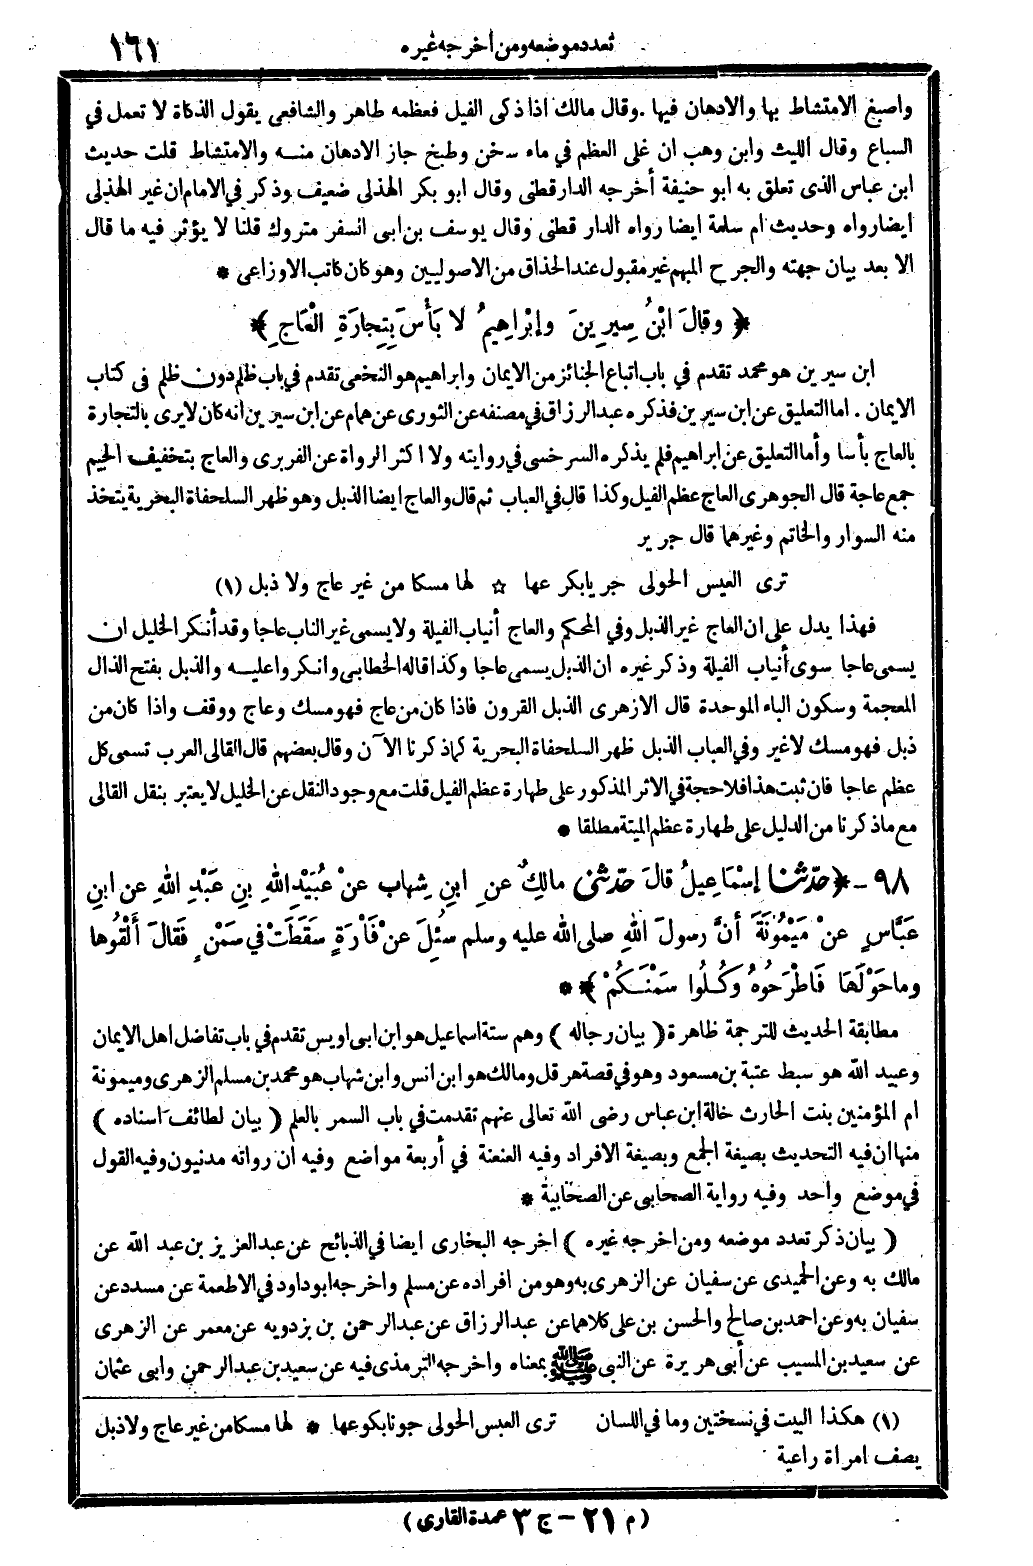 تعدد موضعه ومن أخرجه غيره ١٦١
واصبغ الامتشاط بها والادهان فيها . وقال مالك اذا ذكى الفيل فعظمه طاهر والشافعى يقول الذكاة لا تعمل في
السباع وقال الليث وابن وهب ان غلى العظم في ماء سخن وطبخ جاز الادهان منه والامتشاط قلت حديث
ابن عباس الذى تعلق به ابو حنيفة أخرجه الدارقطنى وقال ابو بكر الهذلى ضعيف وذكر في الامام ان غير الهذلى
ايضا رواه وحديث ام سلمة ايضا رواه الدار قطنى وقال يوسف بن ابى السفر متروك قلنا لا يؤثر فيه ما قال
الا بعد بيان جهته والجرح المبهم غير مقبول عند الحذاق من الاصوليين وهو كان كاتب الاوزاعى *
﴿ وقالَ ابْنُ سِيرِينَ وإبْرَاهِيمُ لا بَأْسَ بِتِجارَةِ الْعَاجِ ﴾
ابن سيرين هو محمد تقدم في باب اتباع الجنائز من الايمان وابراهيم هو النخعى تقدم في باب ظلم دون ظلم في كتاب
الايمان . اما التعليق عن ابن سيرين فذكره عبد الرزاق في مصنفه عن الثورى عن همام عن ابن سيرين انه كان لا يرى بالتجارة
بالعاج بأسا وأما التعليق عن ابراهيم فلم يذكره السرخسى في روايته ولا اكثر الرواة عن الفربرى والعاج بتخفيف الجيم
جمع عاجة قال الجوهرى العاج عظم الفيل وكذا قال في العباب ثم قال والعاج ايضا الذبل وهو ظهر السلحفاة البحرية يتخذ
منه السوار والخاتم وغيرهما قال جرير
ترى العيس الحولى جريا بكرعها ☆ لها مسكا من غير عاج ولا ذبل (١)
فهذا يدل على ان العاج غير الذبل وفي المحكم والعاج أنياب الفيلة ولا يسمى غير الناب عاجا وقد أنكر الخليل ان
يسمى عاجا سوى أنياب الفيلة وذكر غيره ان الذبل يسمى عاجا وكذا قاله الخطابى وانكروا عليه والذبل بفتح الذال
المعجمة وسكون الباء الموحدة قال الازهرى الذبل القرون فاذا كان من عاج فهو مسك وعاج ووقف واذا كان من
ذبل فهو مسك لاغير وفي العباب الذبل ظهر السلحفاة البحرية كما ذكرنا الآن وقال بعضهم قال القالى العرب تسمى كل
عظم عاجا فان ثبت هذا فلا حجة في الاثر المذكور على طهارة عظم الفيل قلت مع وجود النقل عن الخليل لا يعتبر بنقل القالى
مع ماذكرنا من الدليل على طهارة عظم الميتة مطلقا *
٩٨ - ﴿ حدّثنا إسْمَاعِيلُ قالَ حدّثني مالِكٌ عنِ ابنِ شِهابٍ عنْ عُبَيْدِ اللهِ بنِ عَبْدِ اللهِ عن ابنِ
عَبَّاسٍ عنْ مَيْمُونَةَ أنَّ رسولَ اللهِ صلى الله عليه وسلم سئلَ عنْ فأرَةٍ سَقَطَتْ في سَمْنٍ فقالَ ألْقُوها
وما حَوْلَها فَاطْرَحُوهُ وَكُلُوا سَمْنَكُمْ ﴾ * *
مطابقة الحديث للترجمة ظاهرة ( بيان رجاله ) وهم ستة اسماعيل هو ابن ابى اويس تقدم في باب تفاضل اهل الايمان
وعبيد الله هو سبط عتبة بن مسعود وهو في قصة هرقل ومالك هو ابن انس وابن شهاب هو محمد بن مسلم الزهرى وميمونة
ام المؤمنين بنت الحارث خالة ابن عباس رضى الله تعالى عنهم تقدمت في باب السمر بالعلم ( بيان لطائف اسناده )
منها ان فيه التحديث بصيغة الجمع وبصيغة الافراد وفيه العنعنة في أربعة مواضع وفيه ان رواته مدنيون وفيه القول
في موضع واحد وفيه رواية الصحابى عن الصحابية *
( بيان ذكر تعدد موضعه ومن اخرجه غيره ) اخرجه البخارى ايضا في الذبائح عن عبد العزيز بن عبد الله عن
مالك به وعن الحميدى عن سفيان عن الزهرى به وهو من افراده عن مسلم واخرجه ابو داود في الاطعمة عن مسدد عن
سفيان به وعن احمد بن صالح والحسن بن على كلاهما عن عبد الرزاق عن عبد الرحمن بن بزدويه عن معمر عن الزهرى
عن سعيد بن المسيب عن أبى هريرة عن النبى ﷺ بمعناه واخرجه الترمذى فيه عن سعيد بن عبد الرحمن وابى عثمان
(١) هكذا البيت في نسختين وما في اللسان ترى العبس الحولى جونا بكوعها * لها مسكا من غير عاج ولا ذبل
يصف امراة راعية
(م ٢١ - ج ٣ عمدة القارى)